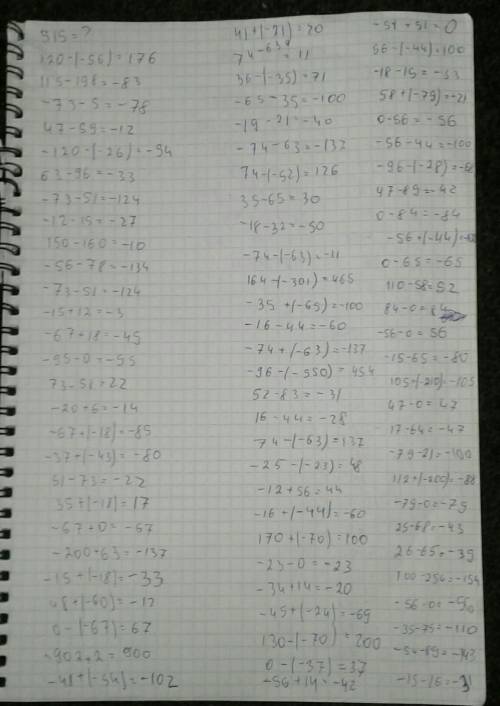 315=?
120-(-56)=176
115-198=-83
-73-5=-78
47-59=-12
-120-(-26)=-94
63-96=-33
-73-51=-124
-12-15=-27
150-160=-10
-56-78=-134
-73-51=-124
-15+12=-3
-67+18=-45
-95-0=-95
73-51=22
-20+6=-14
-67+(-18)=-85
-37+(-43)=-80
51-73=-22
35+(-18)=17
-67+0=-67
-200+63=-137
-15+(-18)=-33
48+(-60)=-12
0-(-67)=67
-902+2=900
-48+(-54)=-102
41+(-21)=20
74-63=11
36-(-35)=71
-65-35=-100
-19-21=-40
-74-63=-137
74-(-52)=126
35-65=30
-18-32=-50
-74-(-63)=-11
164-(-301)=465
-35+(-65)=-100
-16-44=-60
-74+(-63)=-137
-96-(-550)=454
52-83=-31
16-44=-28
74-(-63)=137
-25-(-23)=48
-12+56=44
-16+(-44)=-60
170+(-70)=100
-23-0=-23
-34+14=-20
-45+(-24)=-69
130-(-70)=200
0-(-37)=37
-56+14=-42
-51+51=0
56-(-44)=100
-18-15=-33
58+(-79)=-21
0-56=-56
-56-44=-100
-96-(-28)=-68
47-89=-42
0-84=-84
-56+(-44)=
0-65=-65
110-58=52
84-0=84
-56-0=56
-15-65=-80
105+(-210)=-105
47-0=47
17-64=-47
-79-21=-100
112+(-200)=-88
-79-0=-79
25-68=-43
26-65=-39
100-254=-154
-56-0=-56
-35-75=-110
-54-89=-143
-15-16=-31